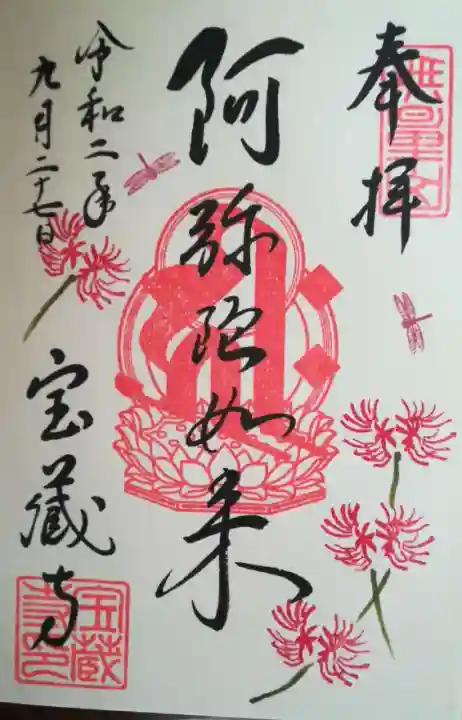 奉拝
阿弥陀如来
令和二年
九月二十七日
宝蔵寺
宝蔵寺印